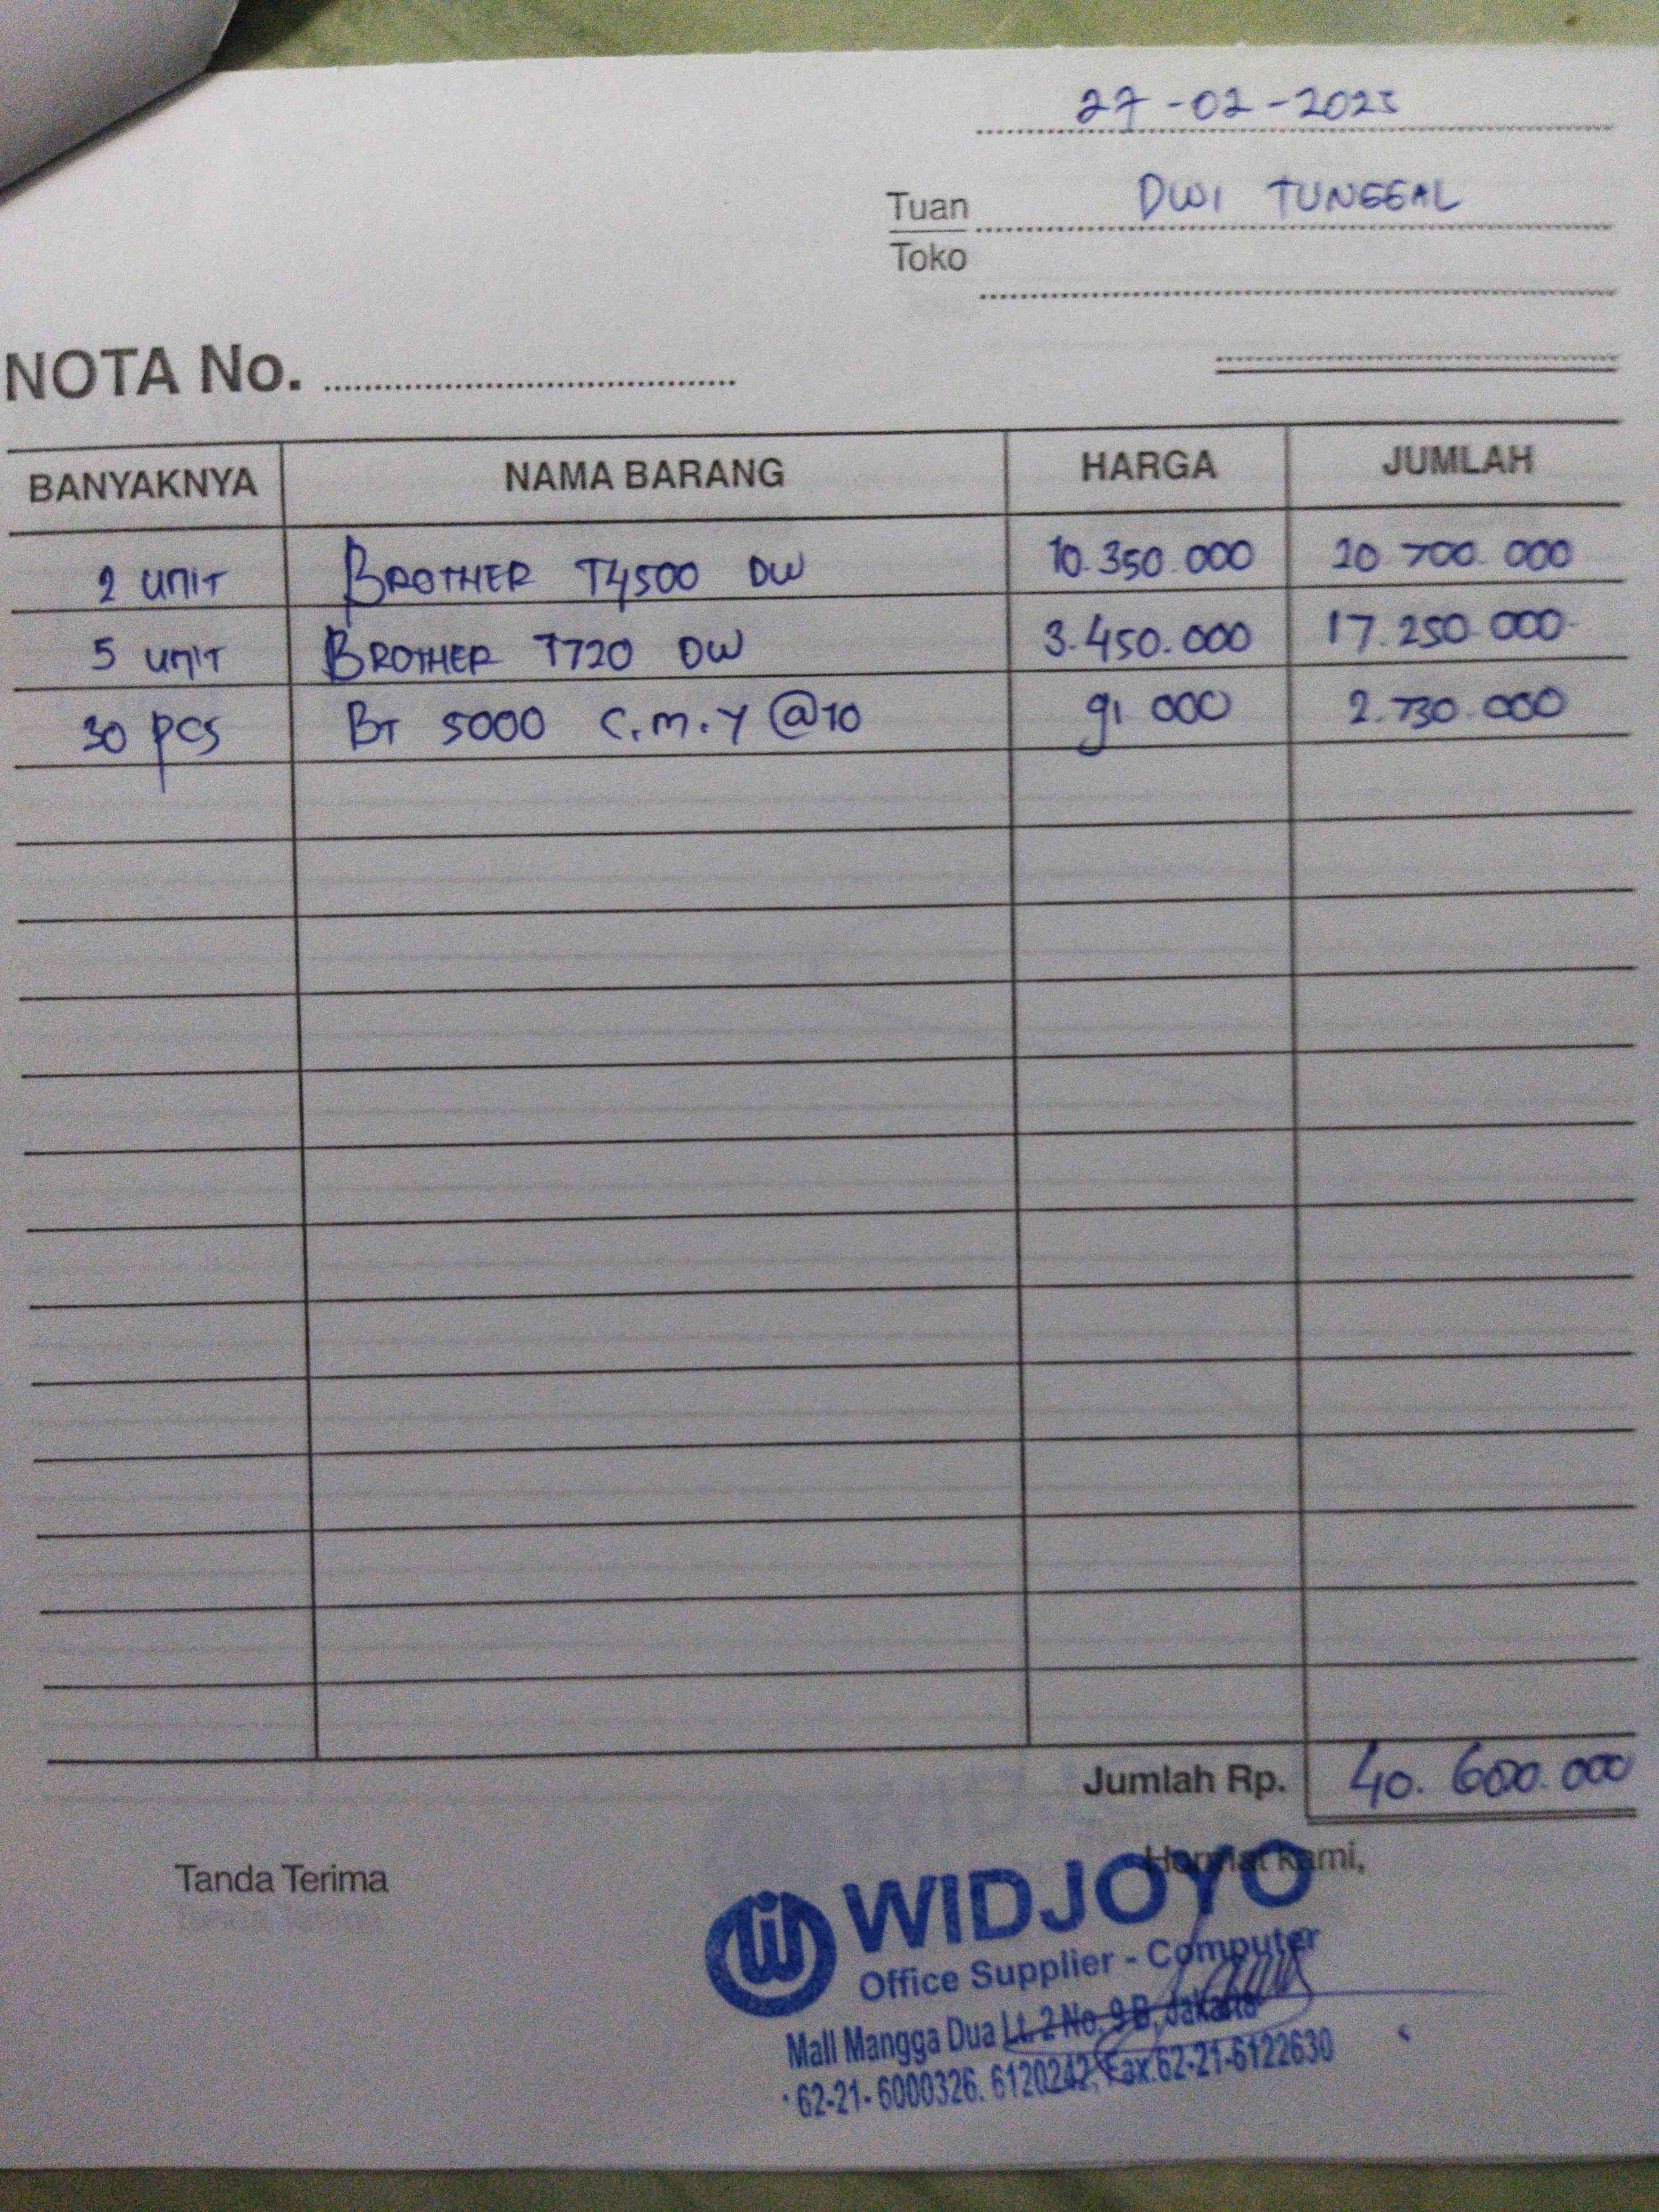 27-02-2025
Tuan DWI TUNGGAL
Toko
NOTA No.
BANYAKNYA NAMA BARANG HARGA JUMLAH
2 UNIT BROTHER T4500 DW 10.350.000 20 700.000
5 UNIT BROTHER T720 DW 3.450.000 17.250 000
30 pcs BT 5000 C.M.Y @10 91 000 2.730.000
Jumlah Rp. 40.600.000
Tanda Terima Hormat kami,
WIDJOYO
Office Supplier - Computer
Mall Mangga Dua Lt. 2 No. 9 B, Jakarta
62-21- 6000326. 6120242, Fax.62-21-6122630